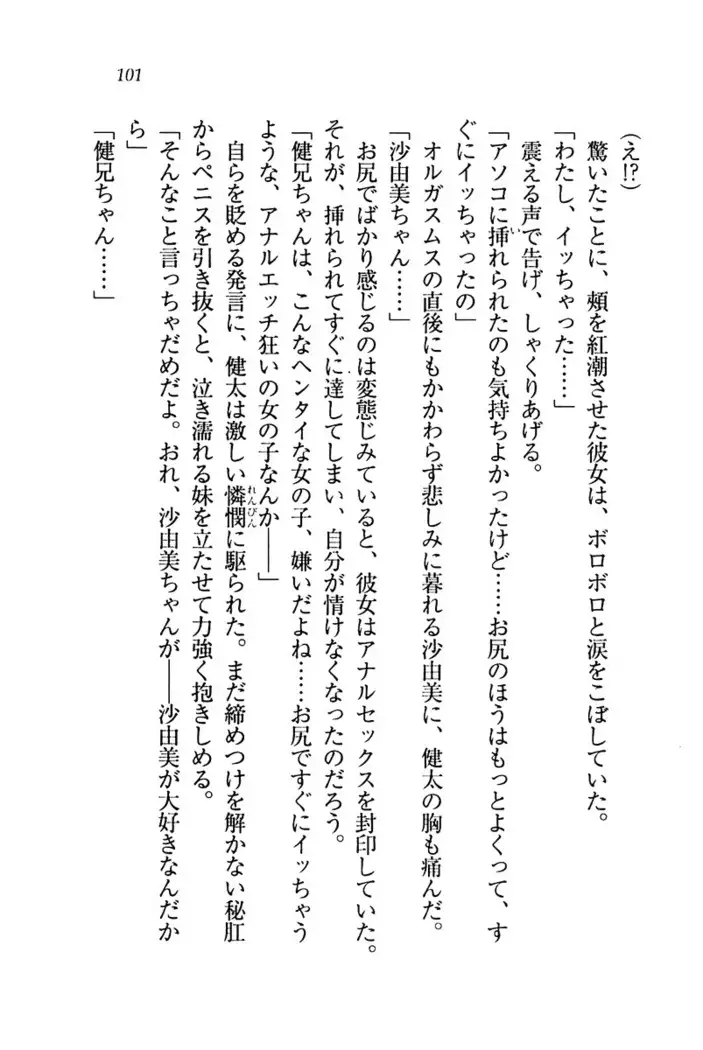 101
(え!?)
驚いたことに、頬を紅潮させた彼女は、ボロボロと涙をこぼしていた。
「わたし、イッちゃった……」
震える声で告げ、しゃくりあげる。
「アソコに挿れられたのも気持ちよかったけど……お尻のほうはもっとよくって、す
ぐにイッちゃったの」
オルガスムスの直後にもかかわらず悲しみに暮れる沙由美に、健太の胸も痛んだ。
「沙由美ちゃん……」
お尻でばかり感じるのは変態じみていると、彼女はアナルセックスを封印していた。
それが、挿れられてすぐに達してしまい、自分が情けなくなったのだろう。
「健兄ちゃんは、こんなヘンタイな女の子、嫌いだよね……お尻ですぐにイッちゃう
ような、アナルエッチ狂いの女の子なんか――」
自らを貶める発言に、健太は激しい憐憫に駆られた。まだ締めつけを解かない秘肛
からペニスを引き抜くと、泣き濡れる妹を立たせて力強く抱きしめる。
「そんなこと言っちゃだめだよ。おれ、沙由美ちゃんが――沙由美が大好きなんだか
ら」
「健兄ちゃん……」